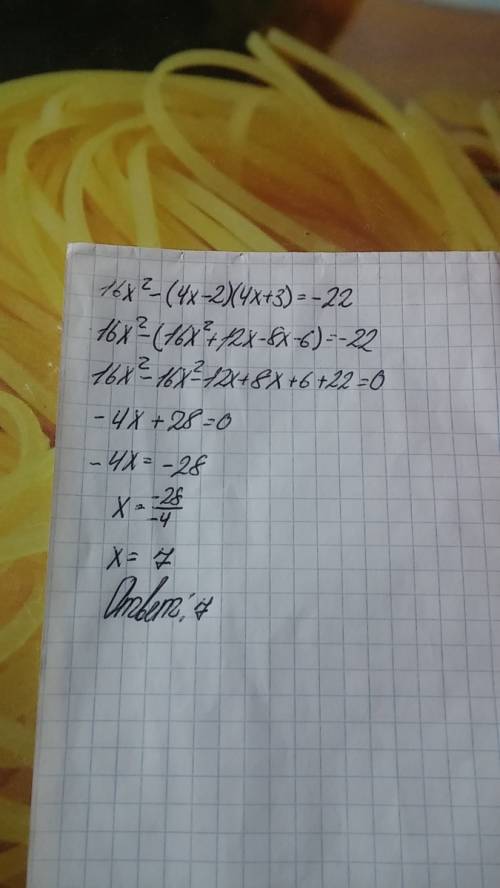 16x² - (4x-2)(4x+3) = -22
16x² - (16x² + 12x - 8x - 6) = -22
16x² - 16x² - 12x + 8x + 6 + 22 = 0
- 4x + 28 = 0
- 4x = -28
x = -28/-4
x = 7
Ответ: 7